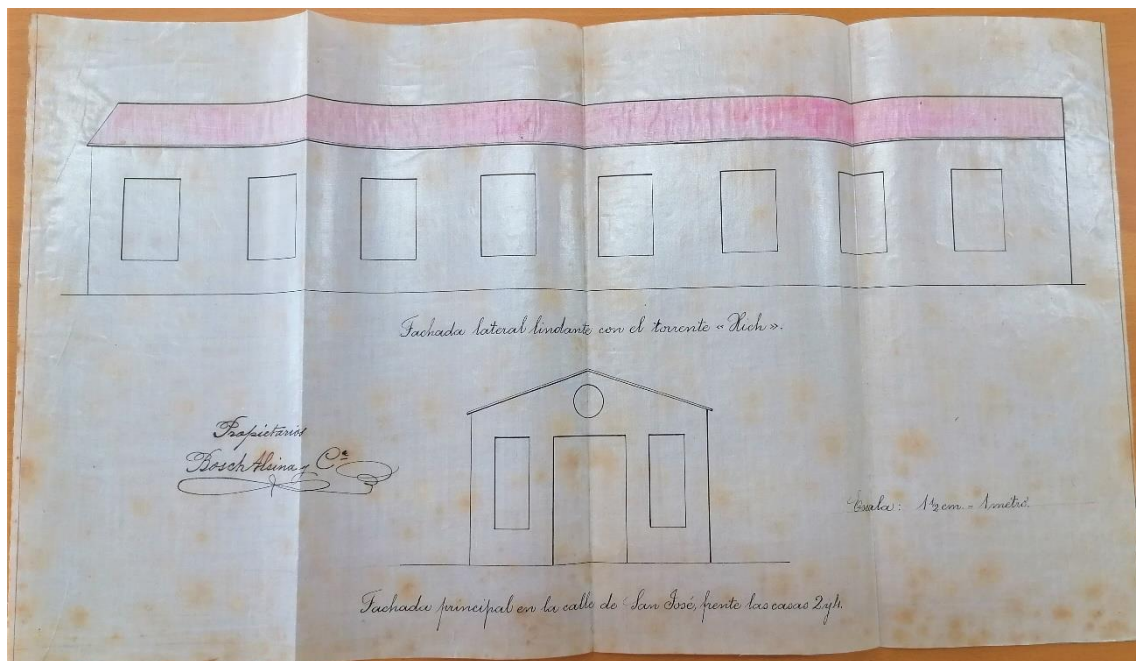 Fachada lateral lindante con el torrente « Xich ».
Propietarios
Bosch Alsina y Cª
Escala: 1½ cm. = 1 metro.
Fachada principal en la calle de San José, frente las casas 2 y 4.